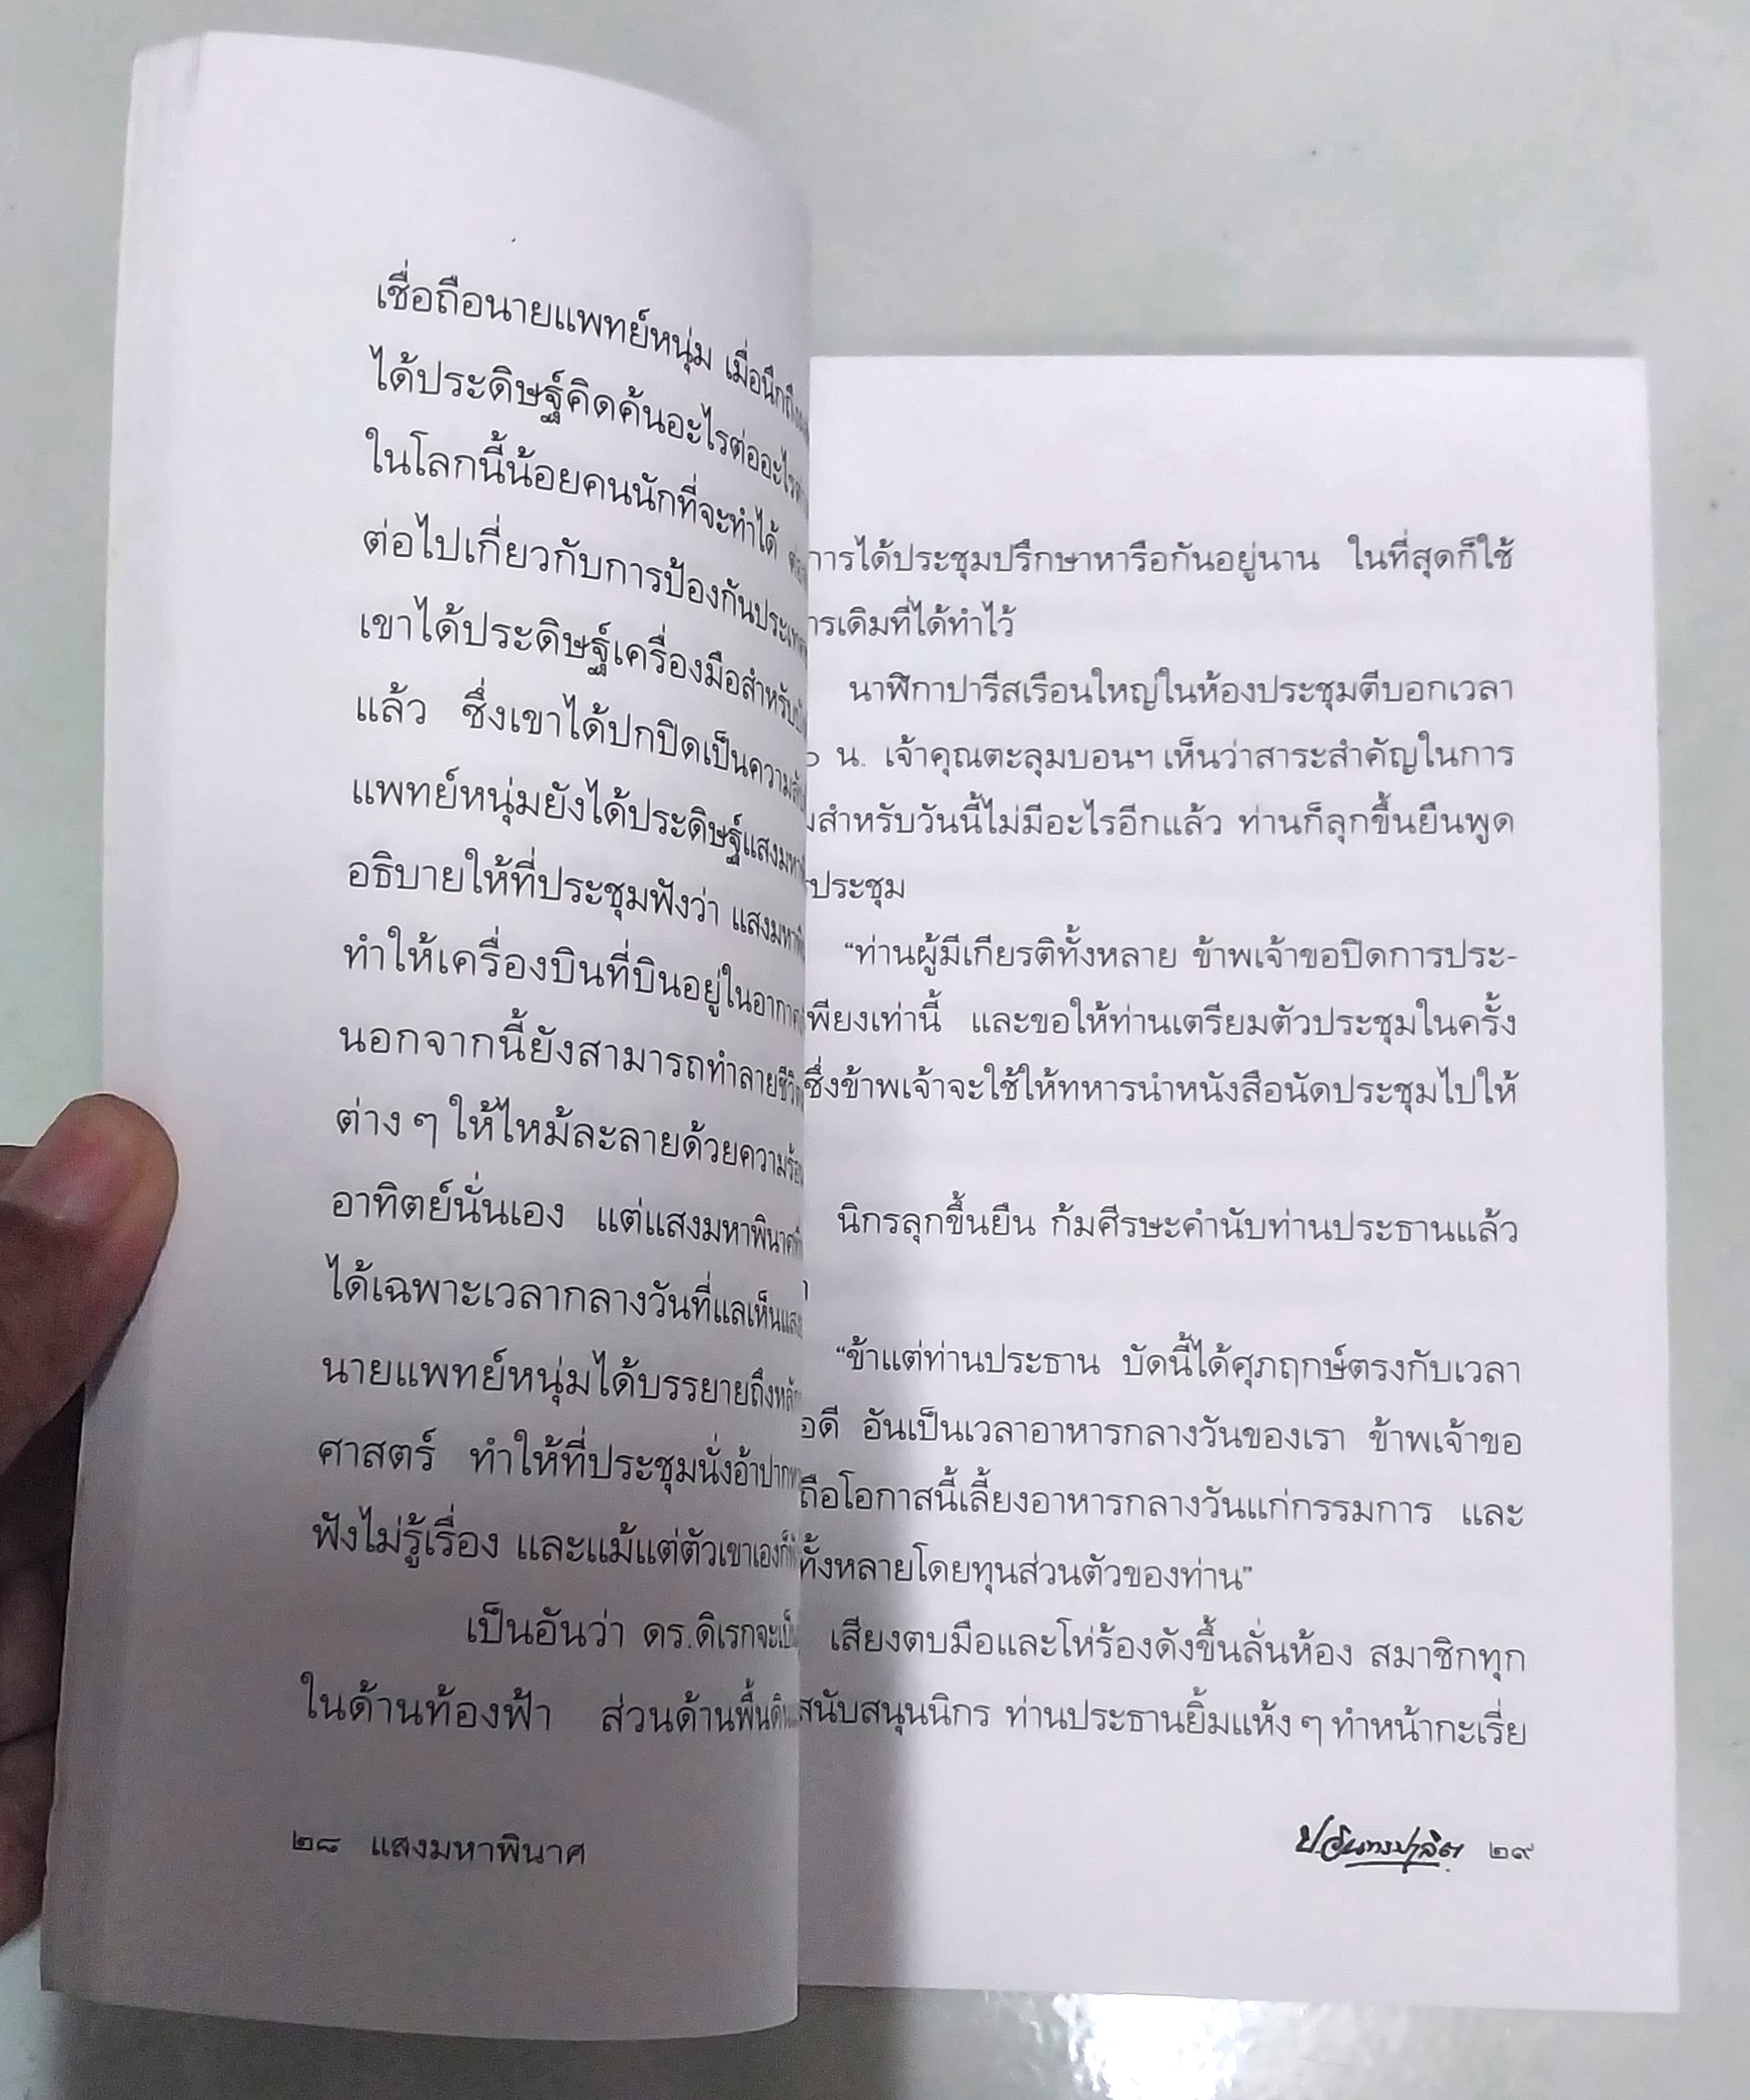 เชื่อถือนายแพทย์หนุ่ม เมื่อนึกถึง
ได้ประดิษฐ์คิดค้นอะไรต่ออะไร
ในโลกนี้น้อยคนนักที่จะทำได้
ต่อไปเกี่ยวกับการป้องกันประเทศ
เขาได้ประดิษฐ์เครื่องมือสำหรับ
แล้ว ซึ่งเขาได้ปกปิดเป็นความ
แพทย์หนุ่มยังได้ประดิษฐ์แสงมหา
อธิบายให้ที่ประชุมฟังว่า แสงมหา
ทำให้เครื่องบินที่บินอยู่ในอากาศ
นอกจากนี้ยังสามารถทำลายชีวิต
ต่าง ๆ ให้ไหม้ละลายด้วยความร้อน
อาทิตย์นั่นเอง แต่แสงมหาพินาศ
ได้เฉพาะเวลากลางวันที่แลเห็นแสง
นายแพทย์หนุ่มได้บรรยายถึงหลัก
ศาสตร์ ทำให้ที่ประชุมนั่งอ้าปาก
ฟังไม่รู้เรื่อง และแม้แต่ตัวเขาเองก็
เป็นอันว่า ดร.ดิเรกจะเป็น
ในด้านท้องฟ้า ส่วนด้านพื้นดิน
๒๘ แสงมหาพินาศ
การได้ประชุมปรึกษาหารือกันอยู่นาน ในที่สุดก็ใช้
ารเดิมที่ได้ทำไว้
นาฬิกาปารีสเรือนใหญ่ในห้องประชุมตีบอกเวลา
น. เจ้าคุณตะลุมบอนฯ เห็นว่าสาระสำคัญในการ
สำหรับวันนี้ไม่มีอะไรอีกแล้ว ท่านก็ลุกขึ้นยืนพูด
ประชุม
“ท่านผู้มีเกียรติทั้งหลาย ข้าพเจ้าขอปิดการประ-
เพียงเท่านี้ และขอให้ท่านเตรียมตัวประชุมในครั้ง
ซึ่งข้าพเจ้าจะใช้ให้ทหารนำหนังสือนัดประชุมไปให้
นิกรลุกขึ้นยืน ก้มศีรษะคำนับท่านประธานแล้ว
“ข้าแต่ท่านประธาน บัดนี้ได้ศุภฤกษ์ตรงกับเวลา
อดี อันเป็นเวลาอาหารกลางวันของเรา ข้าพเจ้าขอ
ถือโอกาสนี้เลี้ยงอาหารกลางวันแก่กรรมการ และ
ทั้งหลายโดยทุนส่วนตัวของท่าน”
เสียงตบมือและโห่ร้องดังขึ้นลั่นห้อง สมาชิกทุก
สนับสนุนนิกร ท่านประธานยิ้มแห้ง ๆ ทำหน้ากะเรี่ย
ป.อินทรปาลิต ๒๙